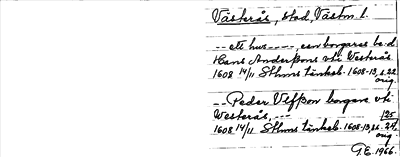 Västerås, stad, Västm. l.
-- ett hus ----, en borgares be:d
Hans Anderßons uti Westerås
1608 14/11 Sthms tänkeb. 1608-13, s. 22
orig.
-- Peder Olfßon borgare uti
Westerås, --- 125
1608 14/11 Sthms tänkeb. 1608-13, s. 24,
orig.
G.E. 1966.